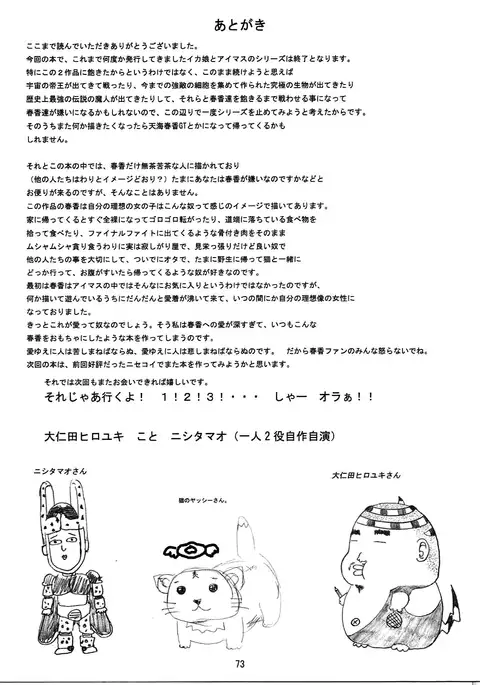 あとがき
ここまで読んでいただきありがとうございました。
今回の本で、これまで何度か発行してきましたイカ娘とアイマスのシリーズは終了となります。
特にこの２作品に飽きたからというわけではなく、このまま続けようと思えば
宇宙の帝王が出てきて戦ったり、今までの強敵の細胞を集めて作られた究極の生物が出てきたり
歴史上最強の伝説の魔人が出てきたりして、それらと春香達を飽きるまで戦わせる事になって
春香達が嫌いになるかもしれないので、この辺りで一度シリーズを止めてみようと考えたからです。
そのうちまた何か描きたくなったら天海春香GTとかになって帰ってくるかも
しれません。
それとこの本の中では、春香だけ無茶苦茶な人に描かれており
（他の人たちはわりとイメージどおり？）たまにあなたは春香が嫌いなのですかなどと
お便りが来るのですが、そんなことはありません。
この作品の春香は自分の理想の女の子はこんな奴って感じのイメージで描いてあります。
家に帰ってくるとすぐ全裸になってゴロゴロ転がったり、道端に落ちている食べ物を
拾って食べたり、ファイナルファイトに出てくるような骨付き肉をそのまま
ムシャムシャ貪り食うわりに実は寂しがり屋で、見栄っ張りだけど良い奴で
他の人たちの事を大切にして、ついでにオタで、たまに野生に帰って猫と一緒に
どっか行って、お腹がすいたら帰ってくるような奴が好きなのです。
最初は春香はアイマスの中ではそんなにお気に入りというわけではなかったのですが、
何か描いて遊んでいるうちにだんだんと愛着が沸いて来て、いつの間にか自分の理想像の女性に
なっておりました。
きっとこれが愛って奴なのでしょう。そう私は春香への愛が深すぎて、いつもこんな
春香をおもちゃにしたような本を作ってしまうのです。
愛ゆえに人は苦しまねばならぬ、愛ゆえに人は悲しまねばならぬのです。　だから春香ファンのみんな怒らないでね。
次回の本は、前回好評だったニセコイでまた本を作ってみようかと思います。
それでは次回もまたお会いできれば嬉しいです。
それじゃあ行くよ！　１！２！３！・・・　しゃー　オラぁ！！
大仁田ヒロユキ　こと　ニシタマオ（一人２役自作自演）
ニシタマオさん
猫のヤッシーさん。
大仁田ヒロユキさん
73